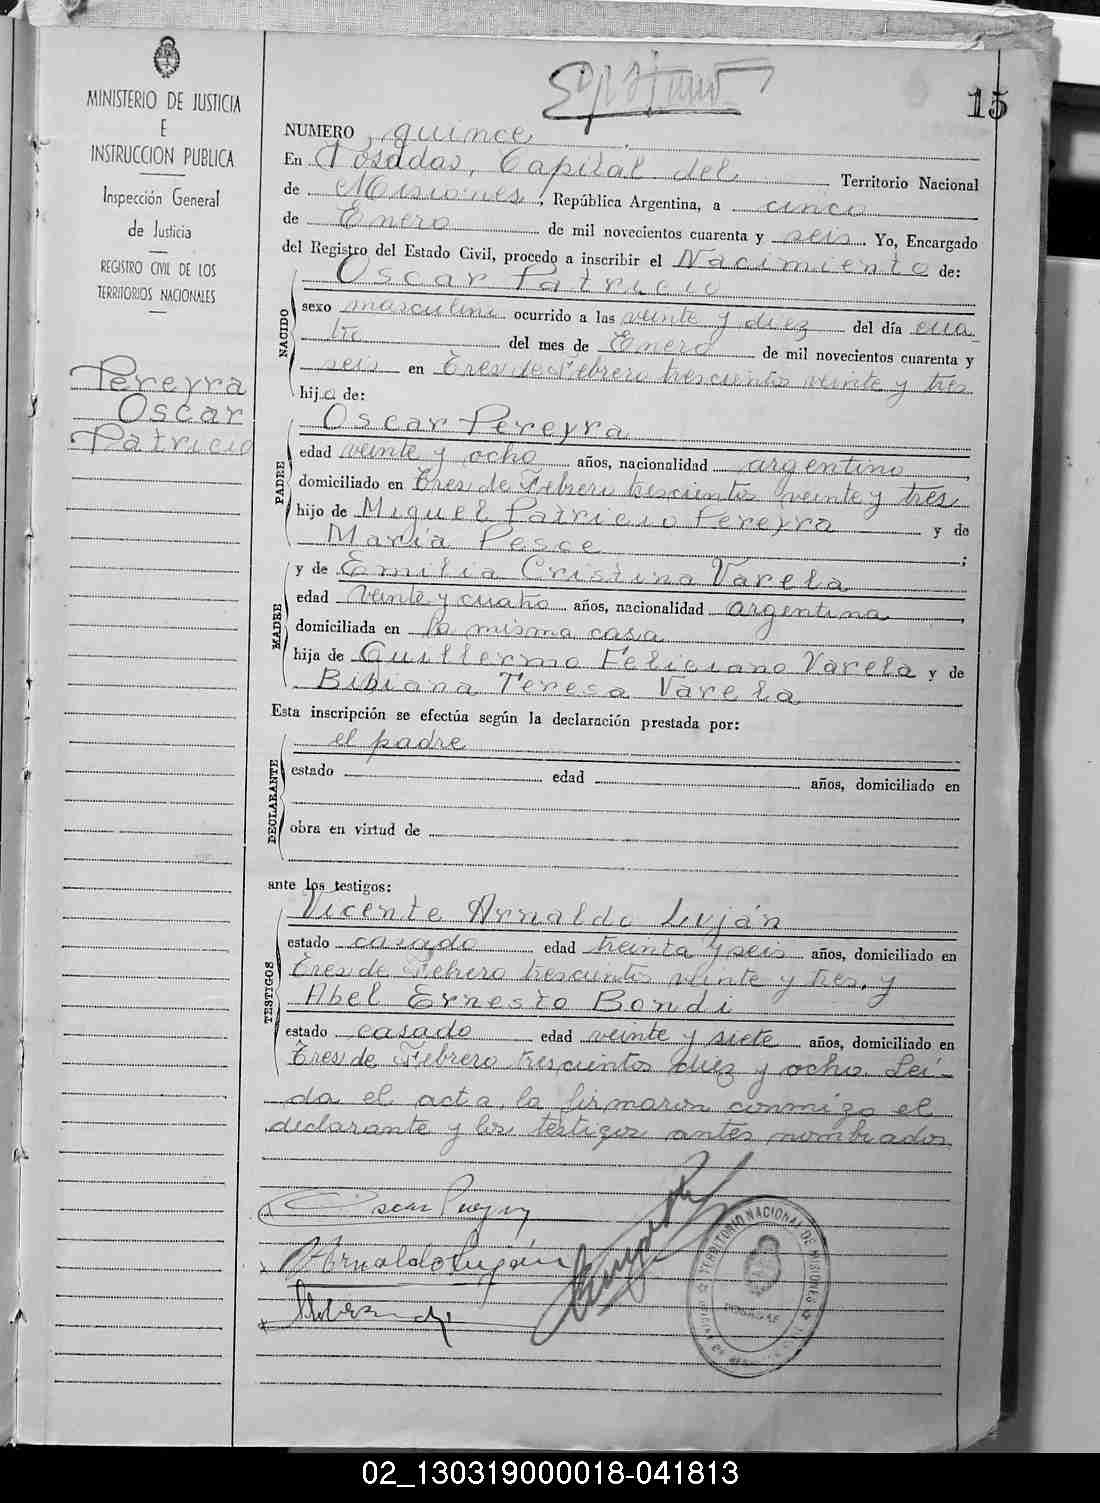 15
MINISTERIO DE JUSTICIA
E
INSTRUCCION PUBLICA
Inspección General
de Justicia
REGISTRO CIVIL DE LOS
TERRITORIOS NACIONALES
Pereyra
Oscar
Patricio
NUMERO quince
En Posadas, Capital del Territorio Nacional
de Misiones, República Argentina, a cinco
de Enero de mil novecientos cuarenta y seis. Yo, Encargado
del Registro del Estado Civil, procedo a inscribir el Nacimiento de:
NACIDO
Oscar Patricio
sexo masculino ocurrido a las veinte y diez del día cua
tro del mes de Enero de mil novecientos cuarenta y
seis en Tres de Febrero trescientos veinte y tres
hijo de:
PADRE
Oscar Pereyra
edad veinte y ocho años, nacionalidad argentino,
domiciliado en Tres de Febrero trescientos veinte y tres
hijo de Miguel Patricio Pereyra y de
María Pesce ;
MADRE
y de Emilia Cristina Varela
edad veinte y cuatro años, nacionalidad argentina,
domiciliada en la misma casa
hija de Guillermo Feliciano Varela y de
Bibiana Teresa Varela
Esta inscripción se efectúa según la declaración prestada por:
DECLARANTE
el padre
estado edad años, domiciliado en
obra en virtud de
ante los testigos:
TESTIGOS
Vicente Arnaldo Luján
estado casado edad treinta y seis años, domiciliado en
Tres de Febrero trescientos veinte y tres, y
Abel Ernesto Bondi
estado casado edad veinte y siete años, domiciliado en
Tres de Febrero trescientos diez y ocho. Leí-
da el acta, la firmaron conmigo el
declarante y los testigos antes nombrados
Oscar Pereyra
Arnaldo Luján
TERRITORIO NACIONAL DE MISIONES
POSADAS
02_130319000018-041813